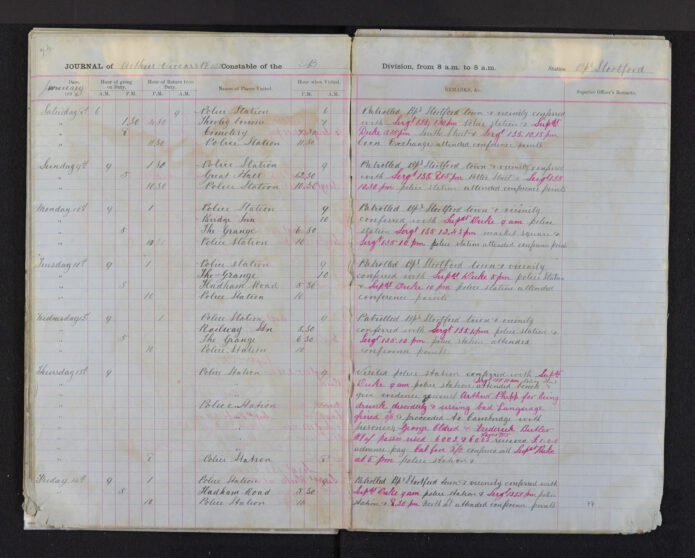 JOURNAL of Arthur Constable of the B
Date, Hour of going on Duty. Hour of Return from Duty. NAMES OF PLACES VISITED. Hour when Visited.
January
A.M. P.M. A.M. P.M. P.M. A.M.
Saturday 8th 6 9 Police Station 6
" 1.30 4.30 Thorley 7
" 8 Cemetery
" 11.30 Police Station 11.30
Sunday 9th 9 1.30 Police Station 9
" 5 Great Hall 12.30
" 10.30 Police Station 10.30
Monday 10th 9 1 Police Station 9
" Bridge Inn 10
" 5 The Grange 6.30
" 10 Police Station 10
Tuesday 11th 9 1 Police Station 9
" The Grange 10
" 5 Hadham Road 5.30
" 10 Police Station 10
Wednesday 12th 9 1 Police Station 9
" Railway Stn 5.30
" 5 The Grange 6.30
" 10 Police Station 10
Thursday 13th 9 Police Station 9
" Police Station
" 5 Police Station 5
Friday 14th 9 1 Police Station 9
" 5 Hadham Road 5.30
" 10 Police Station 10
Division, from 8 a.m. to 8 a.m. Station Bps Stortford
REMARKS, &c. Superior Officer's Remarks.
Patrolled Bps Stortford town & vicinity conferred
with Sergt 135, 1.30 pm police station & Supdt
Duke South Street & Sergt 135. 10.15 pm
Corn Exchange attended conference points
Patrolled Bps Stortford town & vicinity conferred
with Sergt 135. 8.15 pm Potter Street & Sergt 135
10.30 pm police station attended conference points
Patrolled Bps Stortford town & vicinity
conferred with Supdt Duke 9 am police
station Sergt 135 12.45 pm market square &
Sergt 135 10 pm police station attended conference points
Patrolled Bps Stortford town & vicinity
conferred with Supdt Duke 5 pm police station
& Supdt Duke 10 pm police station attended
conference points
Patrolled Bps Stortford town & vicinity
conferred with Sergt 135 police station &
Sergt 135. 10 pm police station attended
conference points
Visited police station conferred with Supdt
Duke 9 am police station attended bench &
give evidence against Arthur Phipp for being
drunk disorderly & useing bad Language
fined & proceeded to Cambridge with
prisoners George Oldred & Frederick Butler
passes used 6002 & 6003 received £1.0.0
advance pay Cab fare conferred with Supdt Duke
at 5 pm police station &
Patrolled Bps Stortford town & vicinity conferred with
Supdt Duke 9 am police station & Sergt 135 police
station & 8.30 pm North St attended conference points